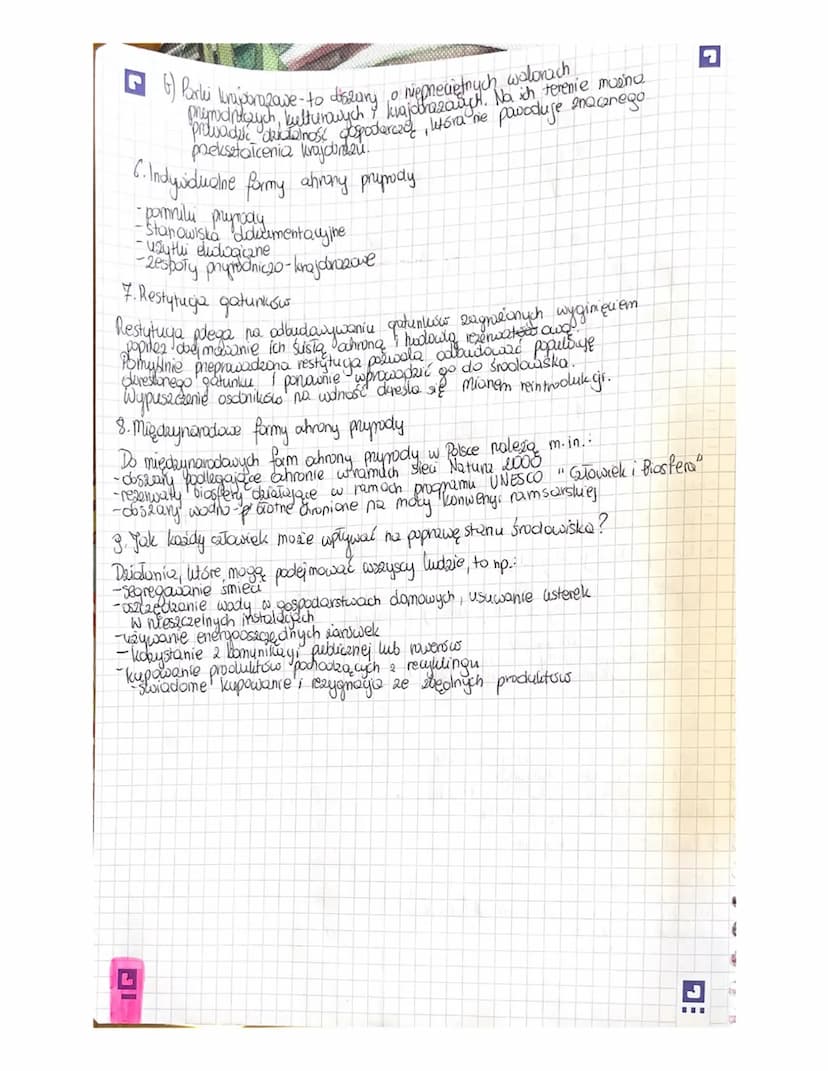 b) Parki krajobrazowe - to obszary o nieprzeciętnych walorach
przyrodniczych, kulturowych i krajobrazowych. Na ich terenie można
prowadzić działalność gospodarczą, która nie powoduje znacznego
przekształcenia krajobrazu.
6. Indywidualne formy ochrony przyrody
- pomniki przyrody
- stanowiska dokumentacyjne
- użytki ekologiczne
- zespoły przyrodniczo-krajobrazowe
7. Restytucja gatunków
Restytucja polega na odbudowywaniu gatunków zagrożonych wyginięciem
poprzez obejmowanie ich ścisłą ochroną i hodowlą rezerwatową.
Pomyślnie przeprowadzona restytucja pozwala odbudować populację
określonego gatunku i ponownie wprowadzić go do środowiska.
Wypuszczenie osobników na wolność określa się mianem reintrodukcji.
8. Międzynarodowe formy ochrony przyrody
Do międzynarodowych form ochrony przyrody w Polsce należą m.in.:
- obszary podlegające ochronie w ramach sieci Natura 2000
- rezerwaty biosfery działające w ramach programu UNESCO "Człowiek i Biosfera"
- obszary wodno-błotne chronione na mocy konwencji ramsarskiej
9. Jak każdy człowiek może wpływać na poprawę stanu środowiska?
Działania, które mogą podejmować wszyscy ludzie, to np.:
- segregowanie śmieci
- oszczędzanie wody w gospodarstwach domowych, usuwanie usterek
w nieszczelnych instalacjach
- używanie energooszczędnych żarówek
- korzystanie z komunikacji publicznej lub rowerów
- kupowanie produktów pochodzących z recyklingu
- świadome kupowanie i rezygnacja ze zbędnych produktów